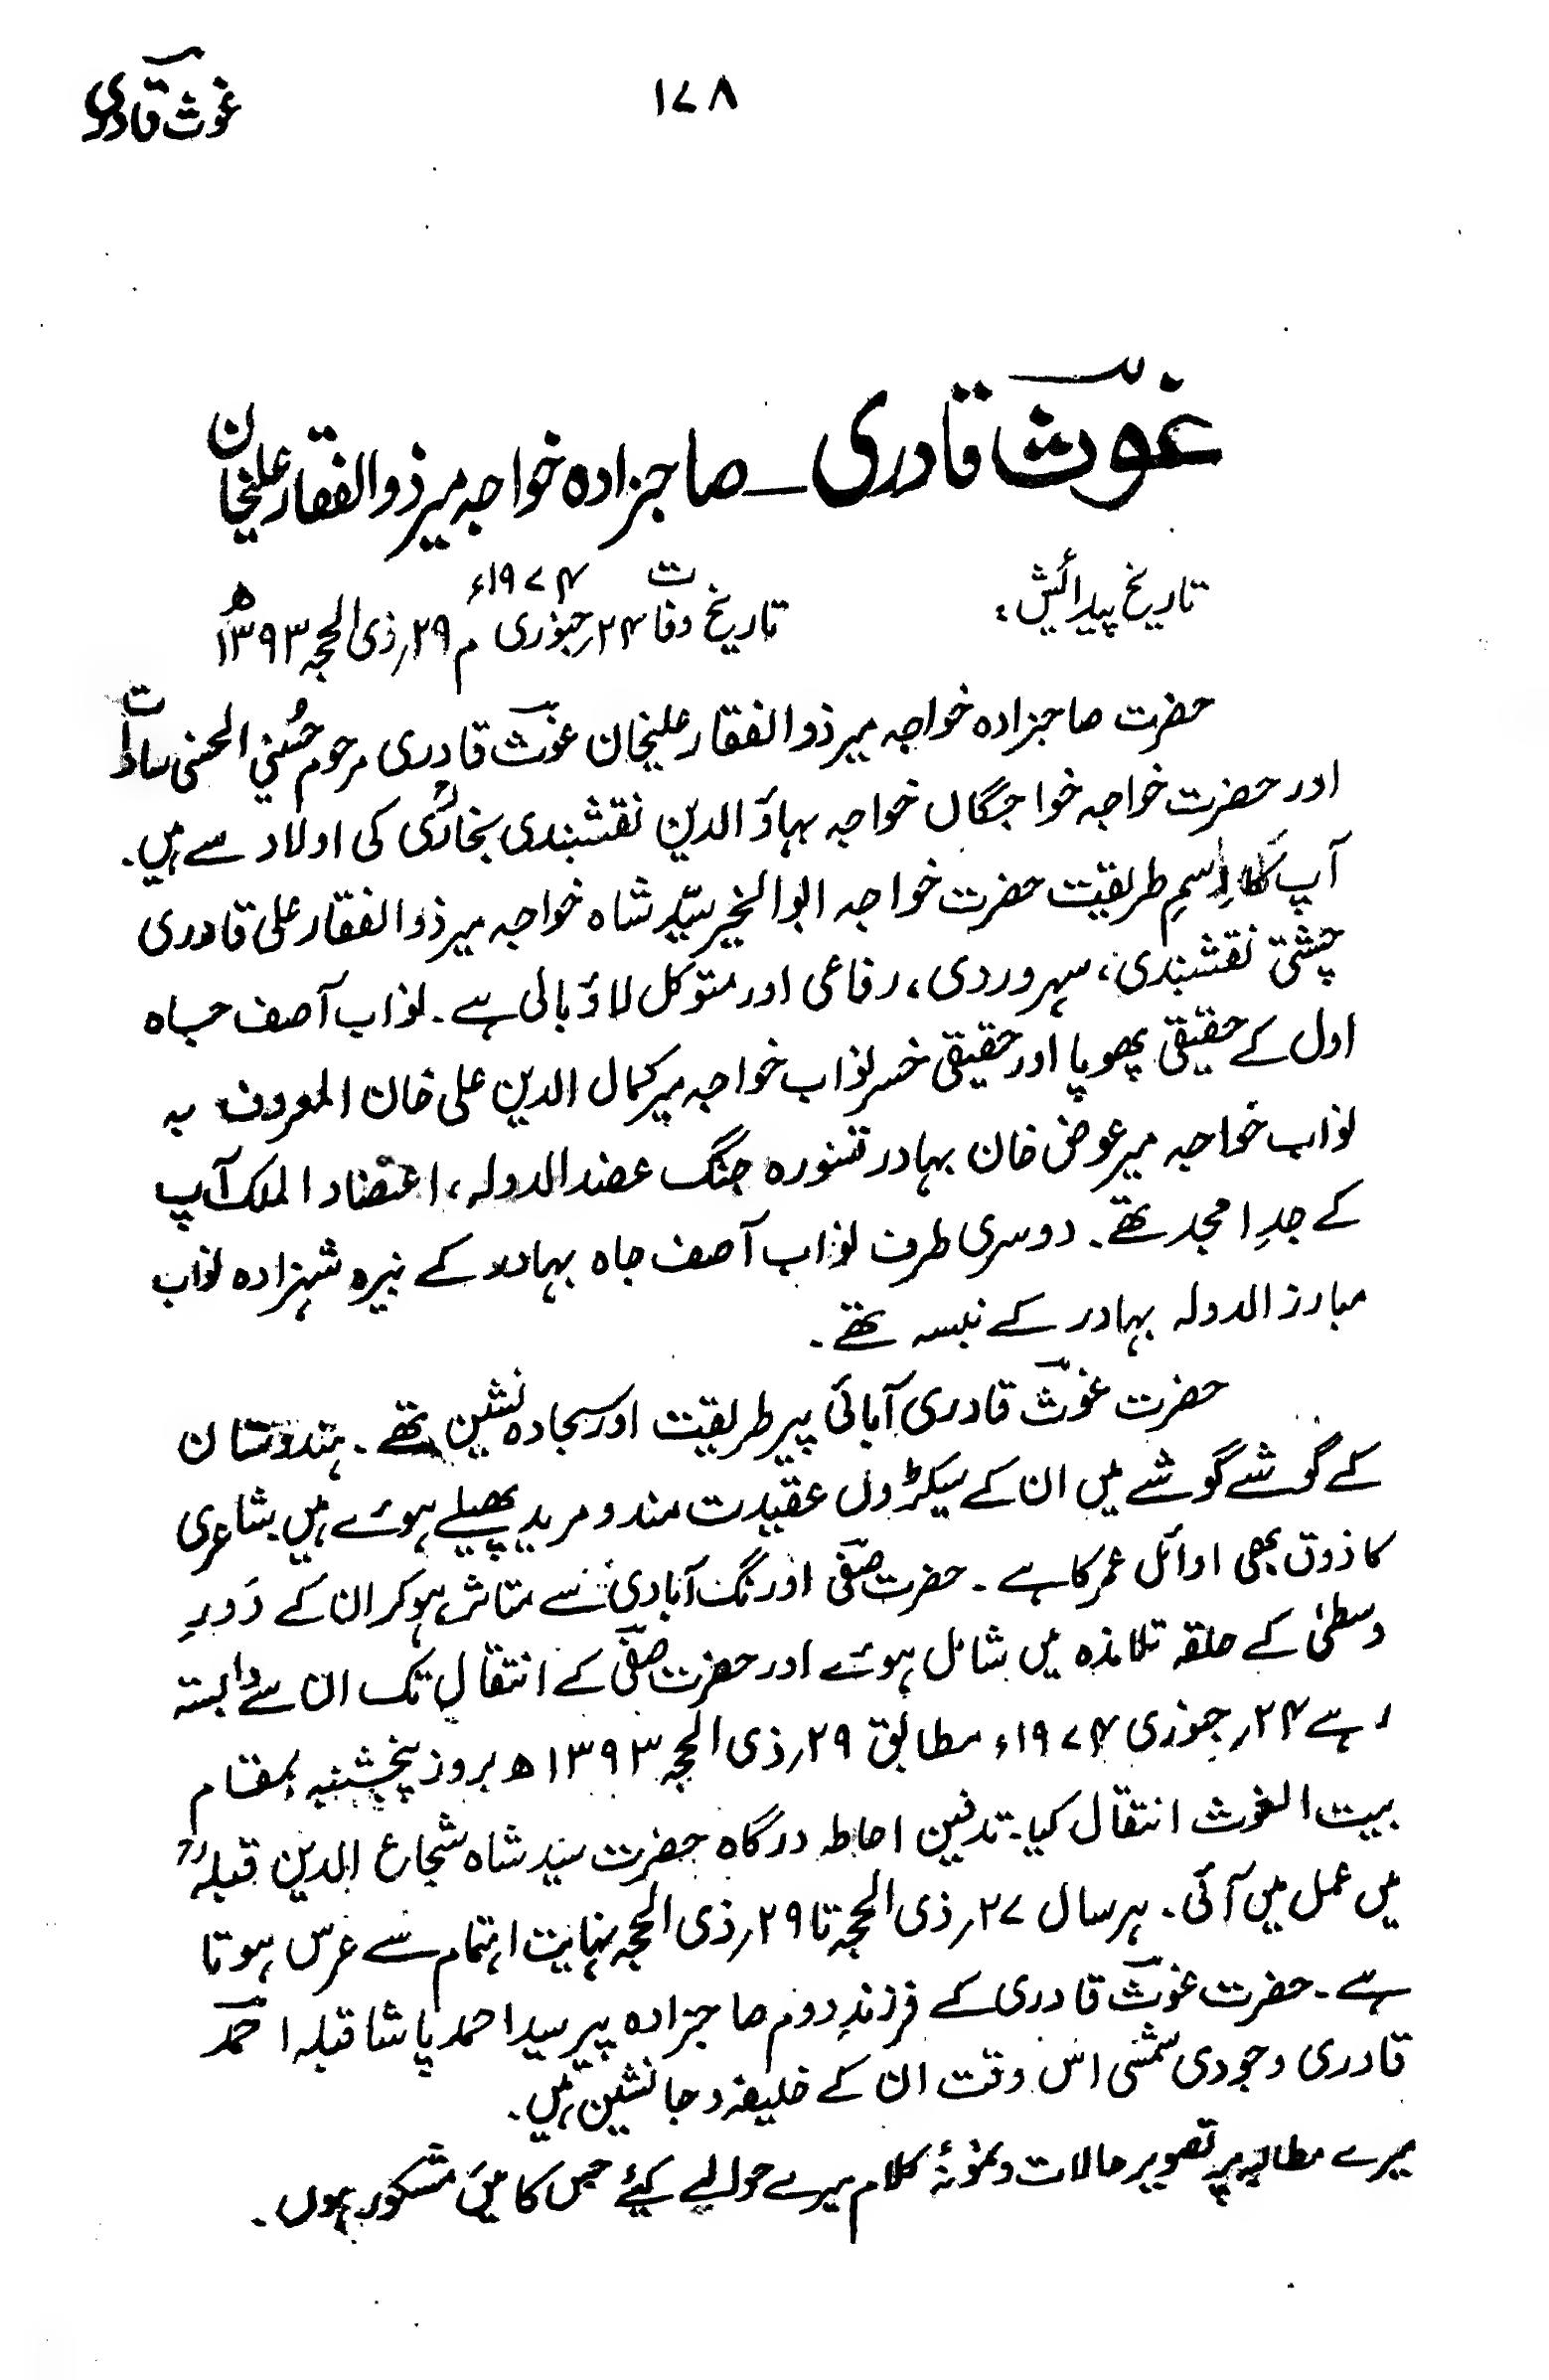 غوثؔ قادری
۱۷۸
غوثؔ قادری ــ صاحبزادہ خواجہ میر ذوالفقار علیخان
تاریخ پیدائیش :
تاریخ وفات ۲۴؍جنوری ۱۹۷۴ء م ۲۹؍ذی الحجہ ۱۳۹۳ھ
حضرت صاحبزادہ خواجہ میر ذوالفقار علیخان غوثؔ قادری مرحوم حُسینی الحسنی سادات
اور حضرت خواجہ خواجگاں خواجہ بہاؤ الدین نقشبندی بخاریؒ کی اولاد سے ہیں۔
آپ کا اِسمِ طریقیت حضرت خواجہ ابوالخیر سیّد شاہ خواجہ میر ذوالفقار علی قادری
چشتی نقشبندی، سہروردی، رفاعی اور متوکل لاؤبالی ہے۔ نواب آصف جاہ
اول کے حقیقی پھوپا اور حقیقی خسر نواب خواجہ میر کمال الدین علی خان المعروف بہ
نواب خواجہ میر عوض خان بہادر تسورہ جنگ عضد الدولہ، اعتضاد الملک آپ
کے جدِ امجد تھے۔ دوسری طرف نواب آصف جاہ بہادر کے نبیرہ شہزادہ نواب
مبارز الدولہ بہادر کے نبسہ تھے۔
حضرت غوثؔ قادری آبائی پیر طریقیت اور سجادہ نشین تھے۔ ہندوستان
کے گوشے گوشے میں ان کے سیکڑوں عقیدت مند و مرید پھیلے ہوئے ہیں شاعری
کا ذوق بھی اوائل عمر کا ہے۔ حضرت صفیؔ اورنگ آبادیؒ سے متاثر ہو کر ان کے دَورِ
وسطیٰ کے حلقہ تلامذہ میں شامل ہوئے اور حضرت صفیؔ کے انتقال تک ان سے وابستہ
رہے ۲۴؍ جنوری ۱۹۷۴ء مطابق ۲۹؍ ذی الحجہ ۱۳۹۳ھ بروز پنجشنبہ بمقام
بیت الغوث انتقال کیا۔ تدفین احاطہ درگاہ حضرت سید شاہ شجاع الدین قبلہؒ
میں عمل میں آئی۔ ہر سال ۲۷؍ ذی الحجہ تا ۲۹؍ ذی الحجہ نہایت اہتمام سے عرس ہوتا
ہے۔ حضرت غوثؔ قادری کے فرزندِ دوم صاحبزادہ پیر سید احمد پاشا قبلہ احمدؔ
قادری وجودی شمسی اس وقت ان کے خلیفہ و جانشین ہیں۔
میرے مطالبہ پر تصویر حالات و نمونۂ کلام میرے حوالے کیئے جس کا میں مشکور ہوں۔